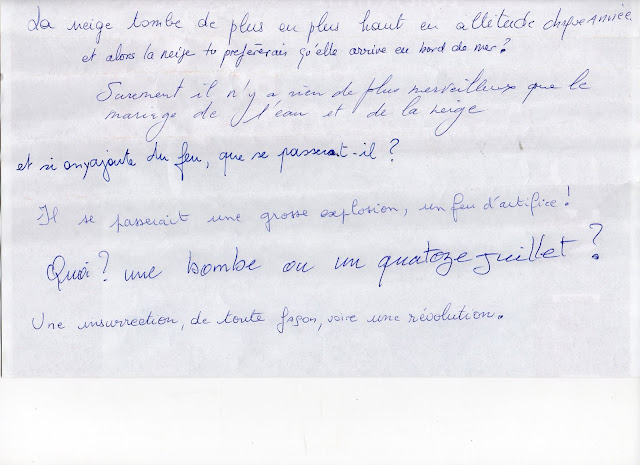 La neige tombe de plus en plus haut en altitude chaque année
et alors la neige tu prefèrerais qu'elle arrive en bord de mer ?
Surement il n'y a rien de plus merveilleux que le
mariage de l'eau et de la neige
et si on y ajoute du feu, que se passerait-il ?
Il se passerait une grosse explosion, un feu d'artifice !
Quoi ? une bombe ou un quatoze juillet ?
Une insurrection, de toute façon, voire une révolution.